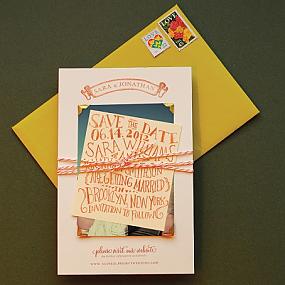 SARA & JONATHAN
SAVE THE DATE
06.14.2013
SARA WILLIAMS
SMITHSON
ARE GETTING MARRIED
IN
BROOKLYN, NEW YORK
INVITATION TO FOLLOW
please visit our website
LOVE
LOVE